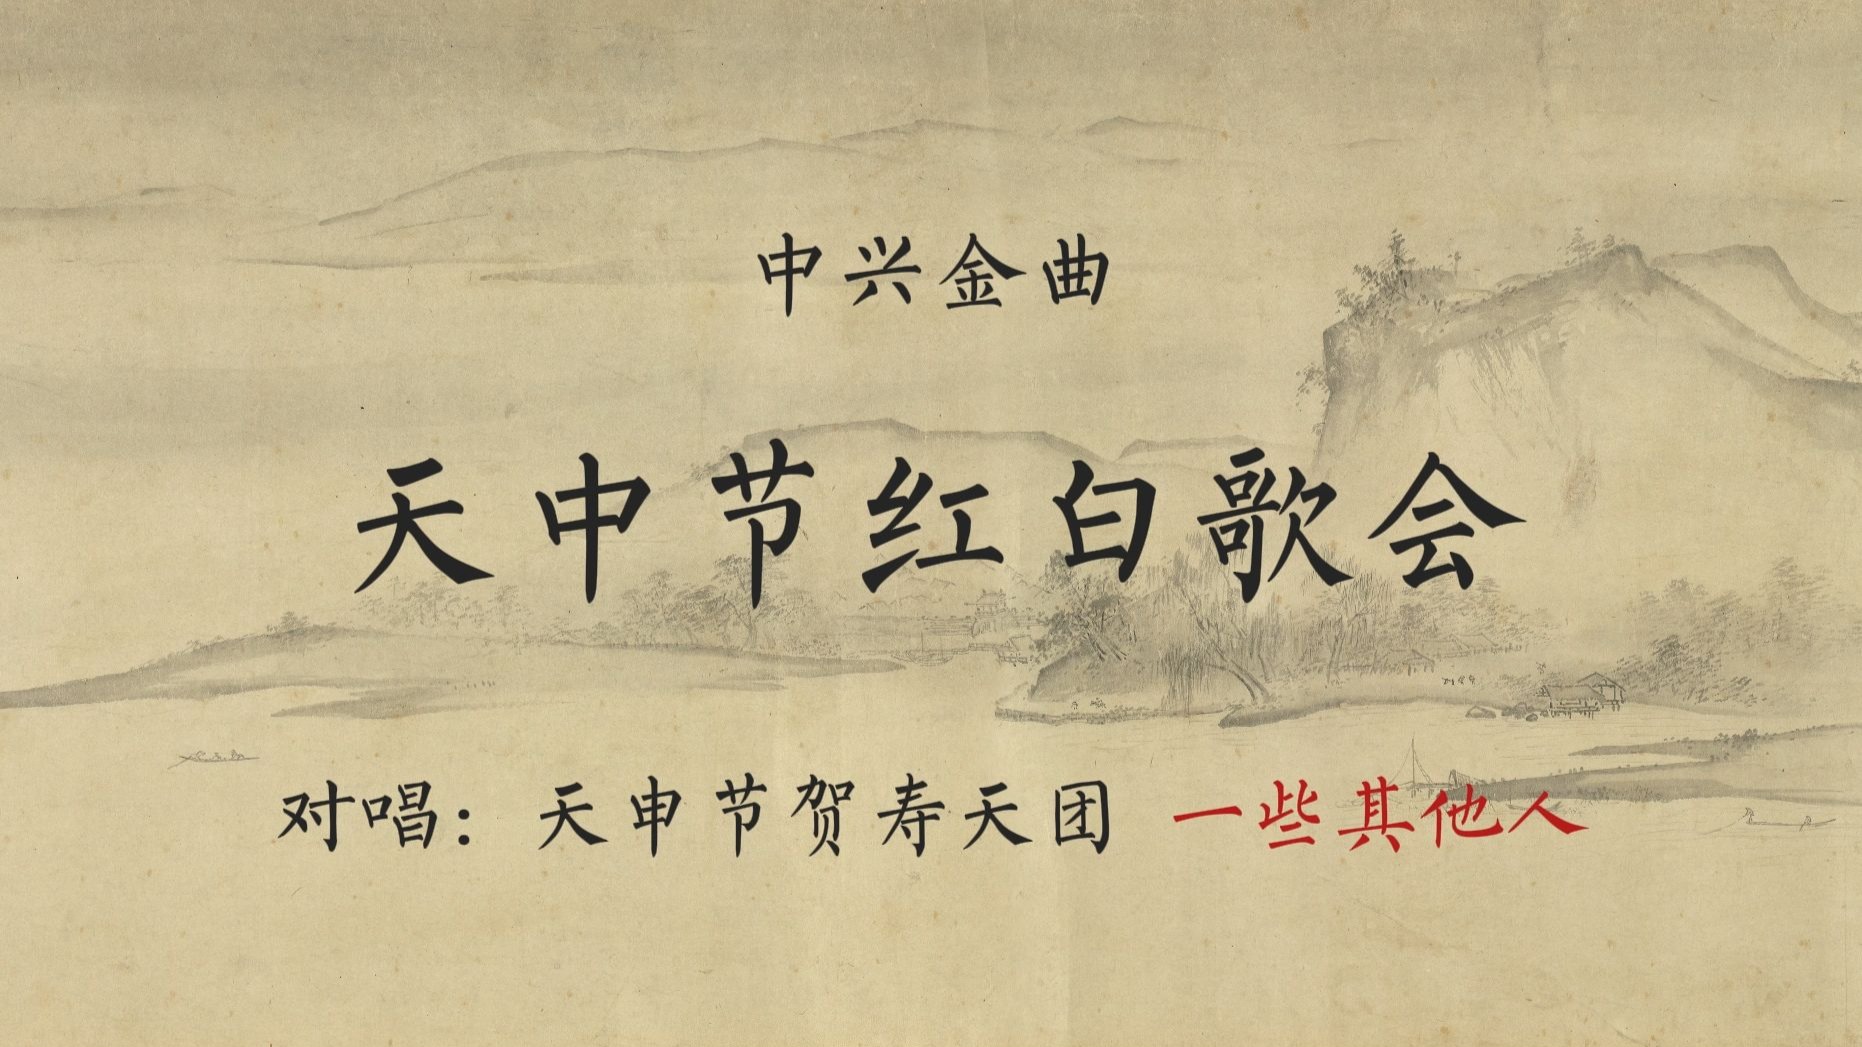 中兴金曲
天申节红白歌会
对唱：天申节贺寿天团 一些其他人